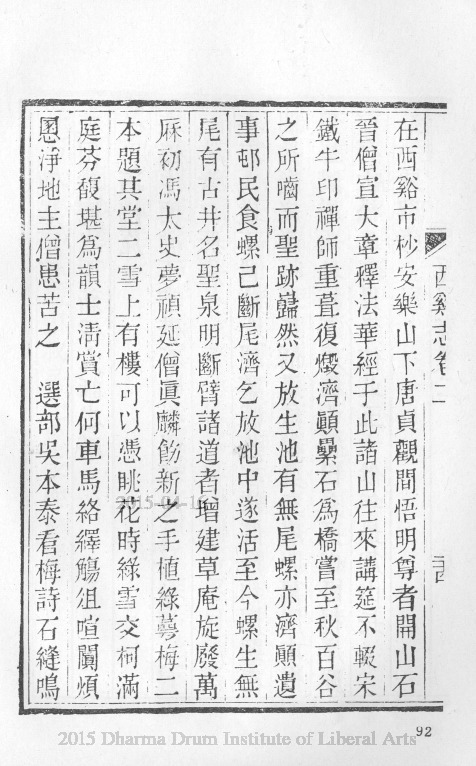 西谿志卷二
在西谿市杪安樂山下唐貞觀間悟明尊者開山石
晉僧宣大章釋法華經于此諸山往來講筵不輟宋
鐵牛印禪師重葺復燬濟顚纍石為橋嘗至秋百谷
之所嚙而聖跡巋然又放生池有無尾螺亦濟顚遺
事邨民食螺己斷尾濟乞放池中遂活至今螺生無
尾有古井名聖泉明斷臂諸道者增建草庵旋廢萬
厤初馮太史夢禎延僧眞麟飭新之手植綠萼梅二
本題其堂二雪上有樓可以憑眺花時綠雪交柯滿
庭芬馥堪為韻士淸賞亡何車馬絡繹觴俎喧闐煩
恩淨地主僧患苦之 選部吳本泰看梅詩石縫鳴
92
2015-04-16
2015 Dharma Drum Institute of Liberal Arts